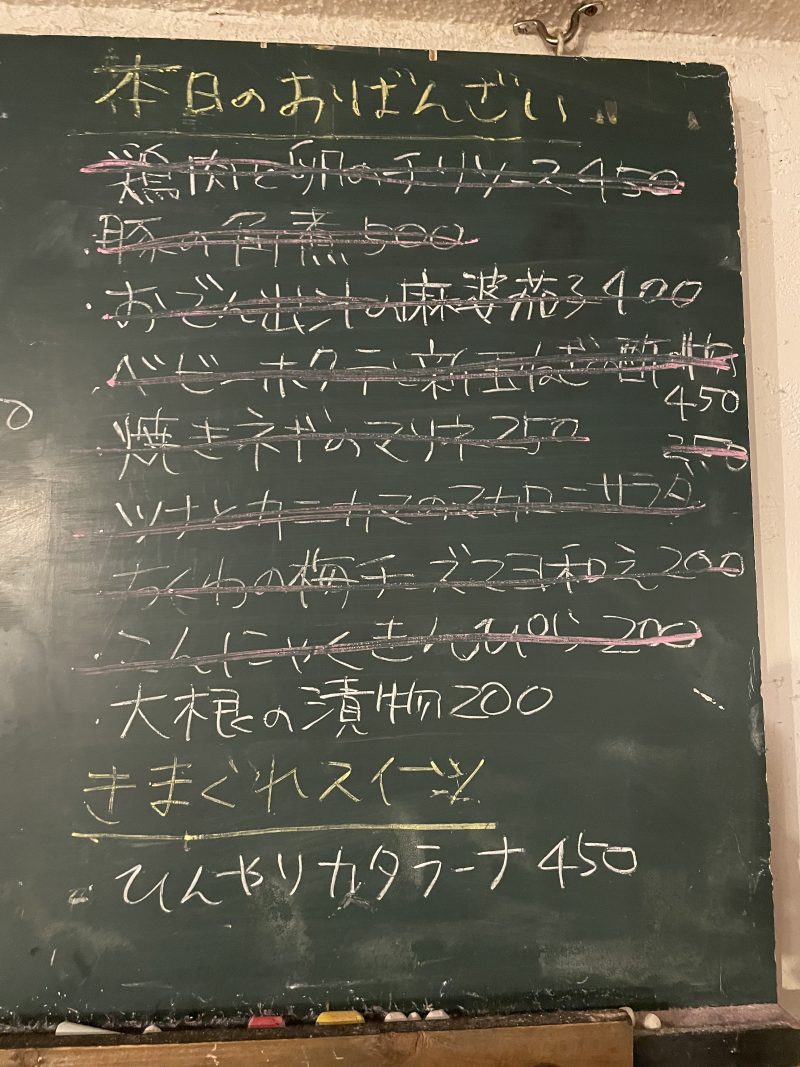 本日のおばんざい
・鶏肉と卵のチリソース450
・豚の角煮500
・おでん出汁の麻婆茄子400
・ベビーホタテと新玉ねぎの酢物
450
・焼きネギのマリネ250
350
・ツナとカニカマのマカロニサラダ
・ちくわの梅チーズマヨ和え200
・こんにゃくきんぴら200
・大根の漬物200
きまぐれスイーツ
・ひんやりカタラーナ450